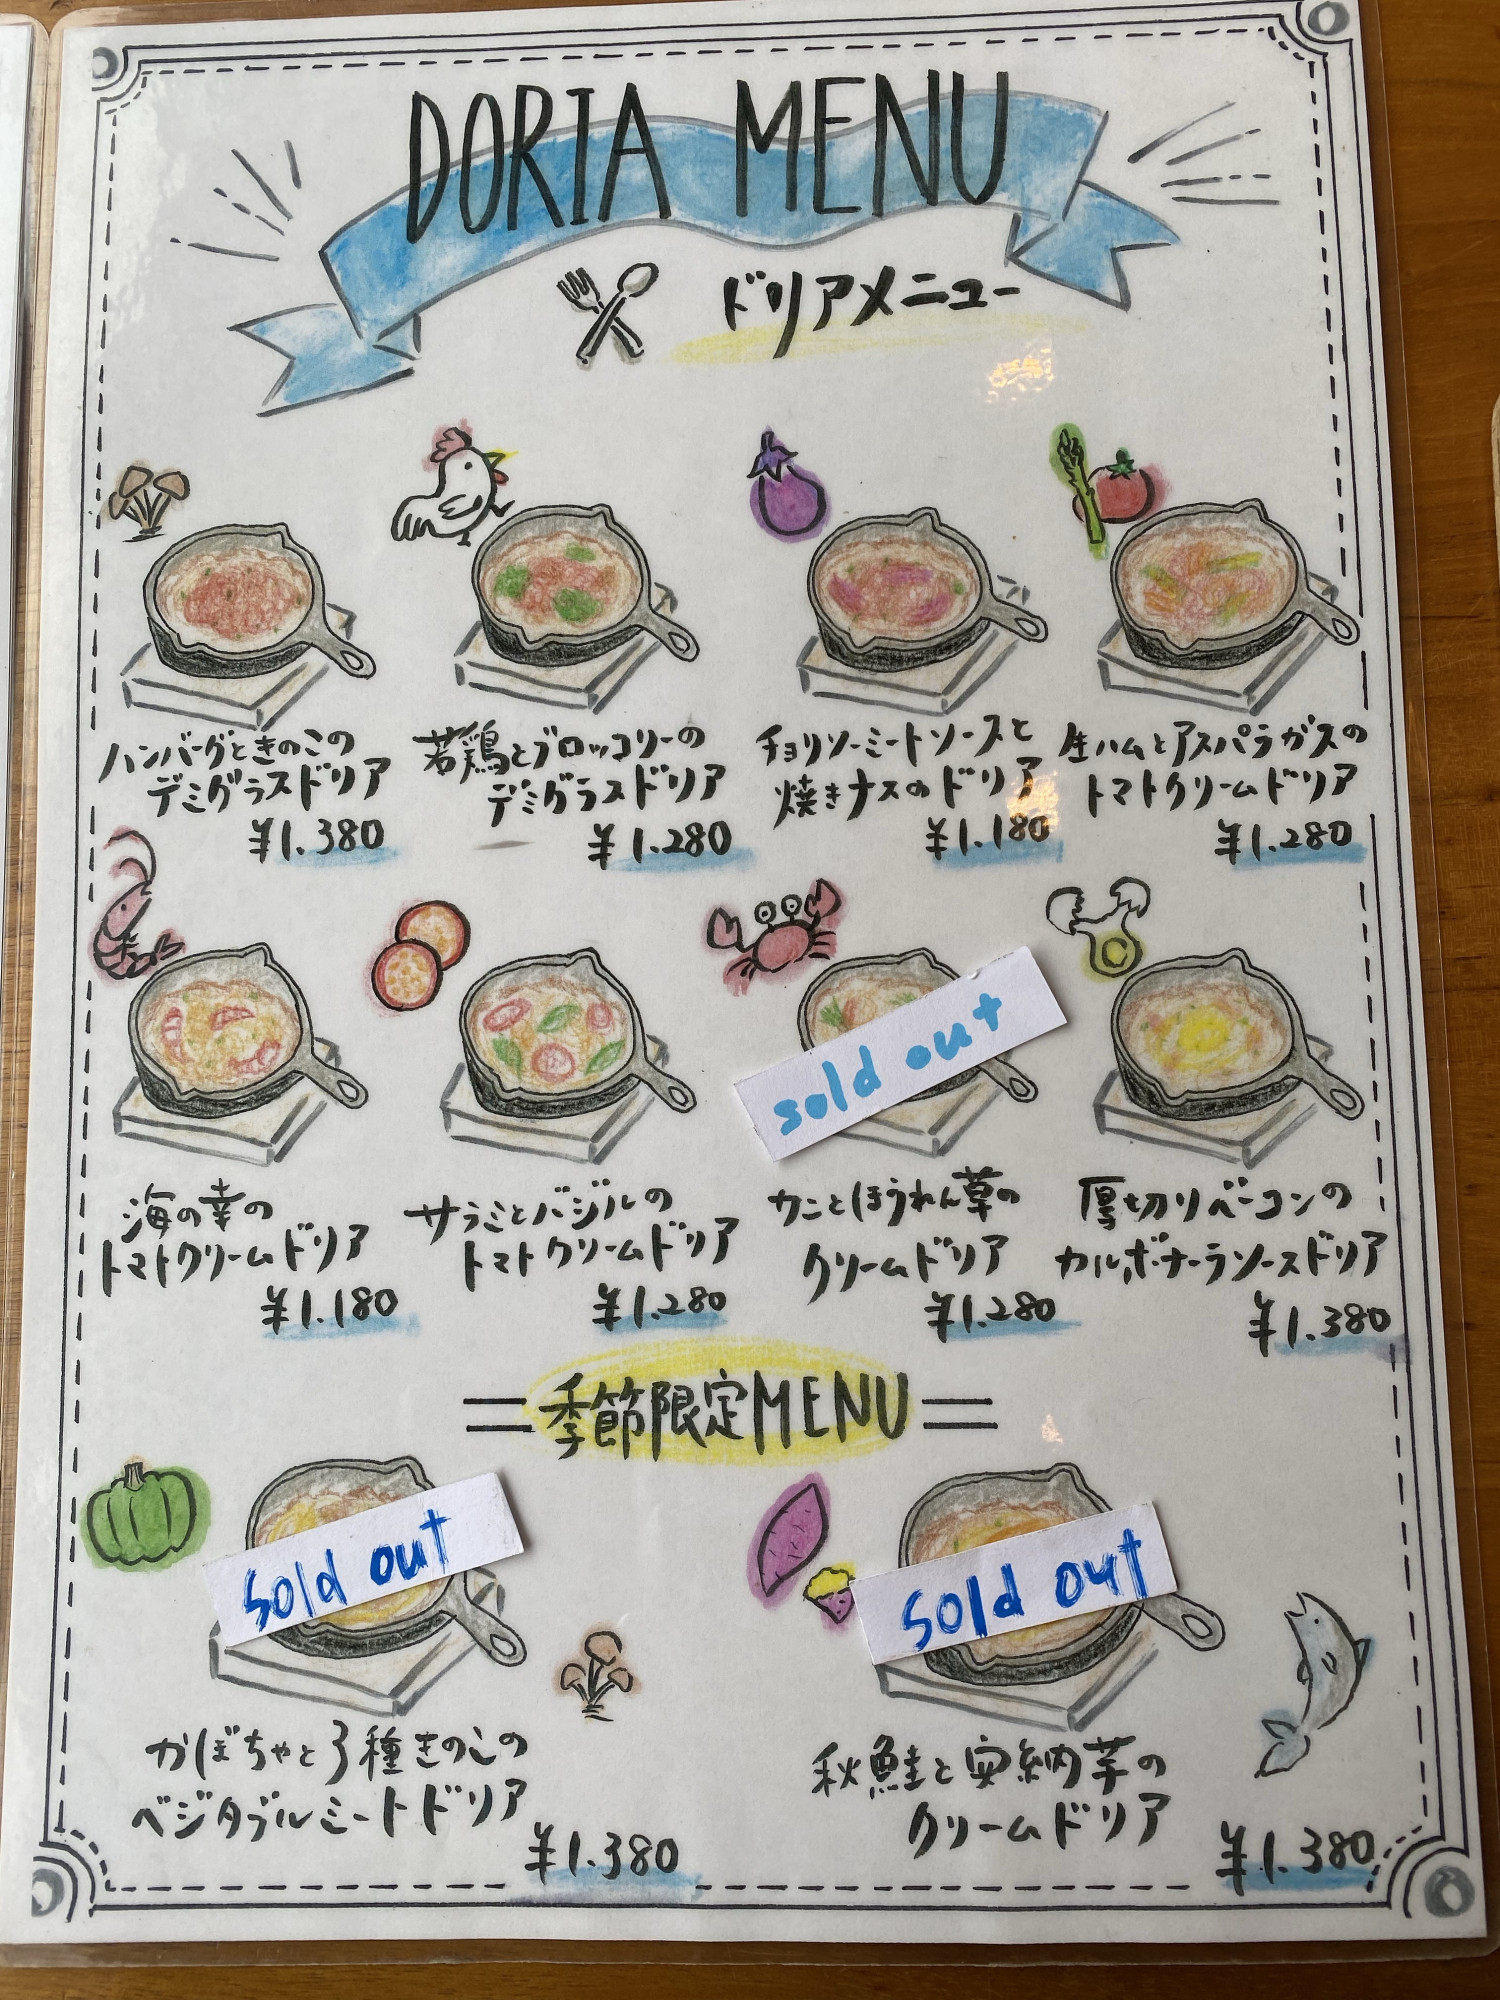 DORIA MENU
ドリアメニュー
ハンバーグときのこの
デミグラスドリア
¥1.380
若鶏とブロッコリーの
デミグラスドリア
¥1.280
チョリソーミートソースと
焼きナスのドリア
¥1.180
生ハムとアスパラガスの
トマトクリームドリア
¥1.280
海の幸の
トマトクリームドリア
¥1.180
サラミとバジルの
トマトクリームドリア
¥1.280
sold out
カニとほうれん草の
クリームドリア
¥1.280
厚切りベーコンの
カルボナーラソースドリア
¥1.380
季節限定MENU
sold out
かぼちゃと3種きのこの
ベジタブルミートドリア
¥1.380
sold out
秋鮭と安納芋の
クリームドリア
¥1.380